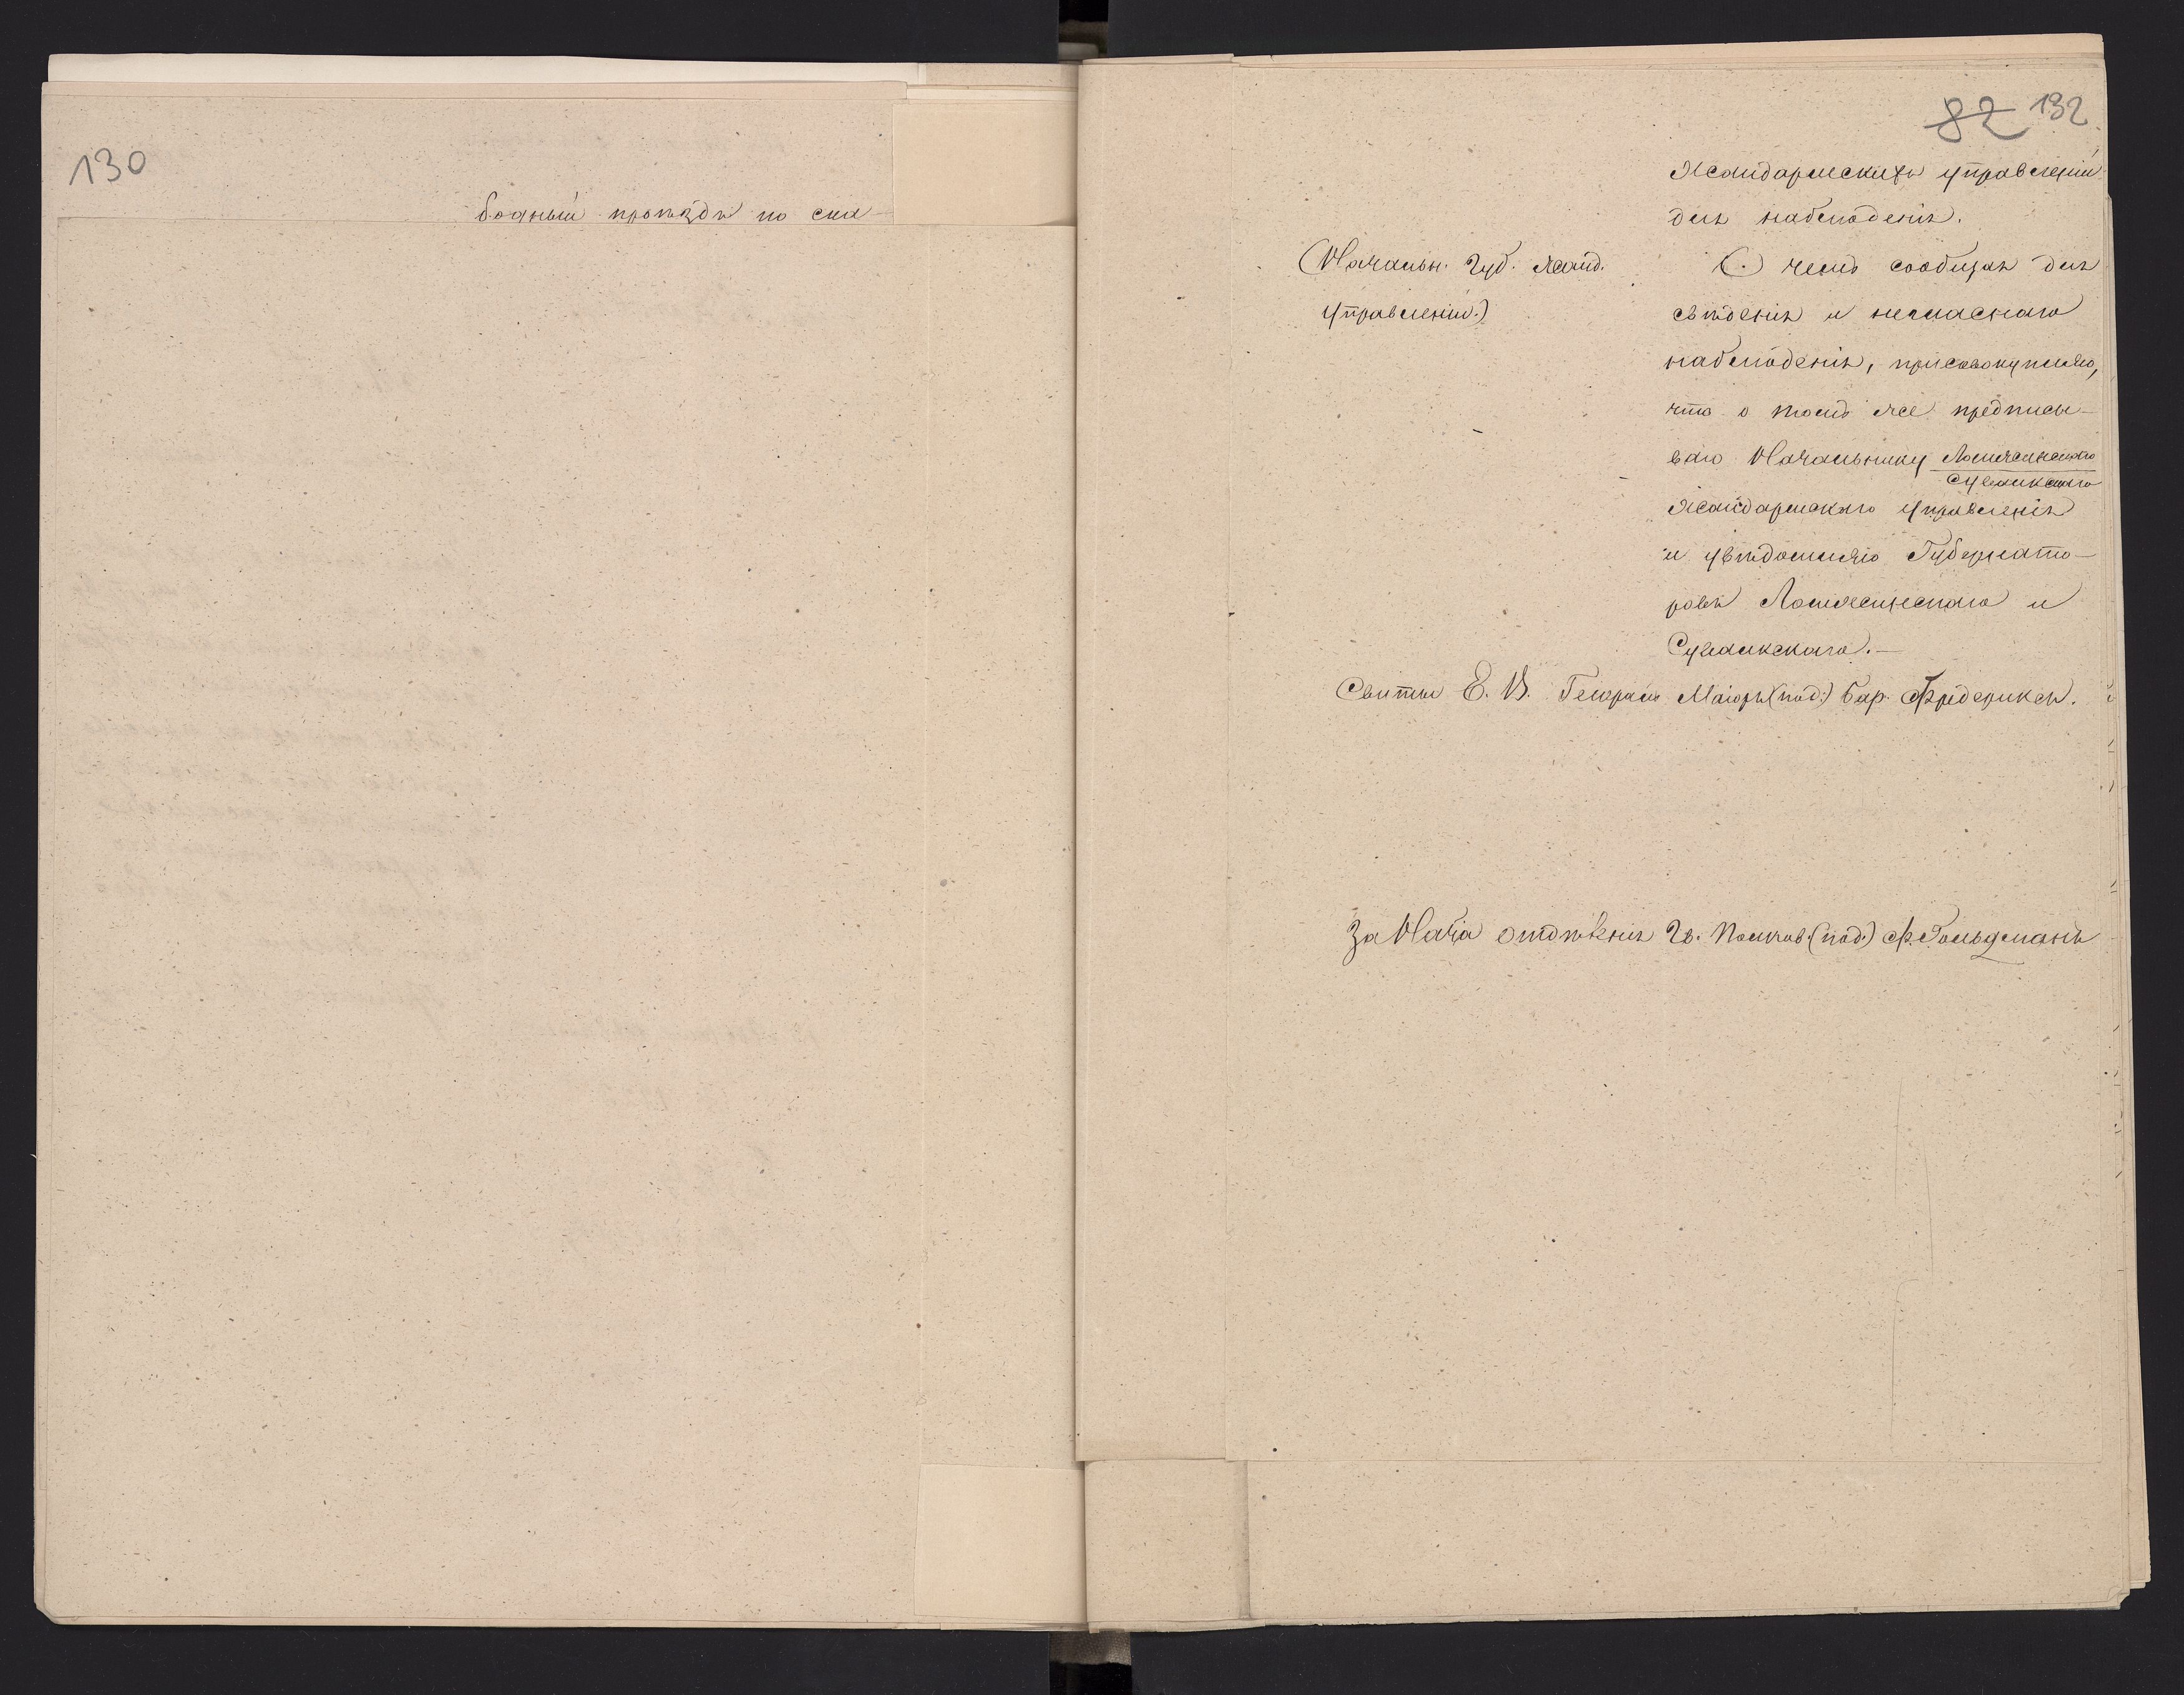 130
бодный проѣздъ по ска-
82 132
Жандармскихъ управленій
для наблюденія.
(Начальн. Губ. Жанд.
управленій.)
О чемъ сообщая для
свѣдѣнія и негласнаго
наблюденія, присовокупляю,
что о томъ же предписы-
ваю Начальнику Ломжинскаго
Сувалкскаго
Жандармскаго управленія
и увѣдомляю Губернато-
ровъ Ломжинскаго и
Сувалкскаго.—
Свиты Е. В. Генералъ Маіоръ (под:) Бар. Фредериксъ.
За Нач<sup>ка</sup> отдѣленія Гв. Полков. (под.) Ф. Гольдманъ